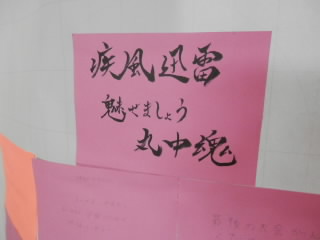 疾風迅雷
魅せましょう
丸中魂